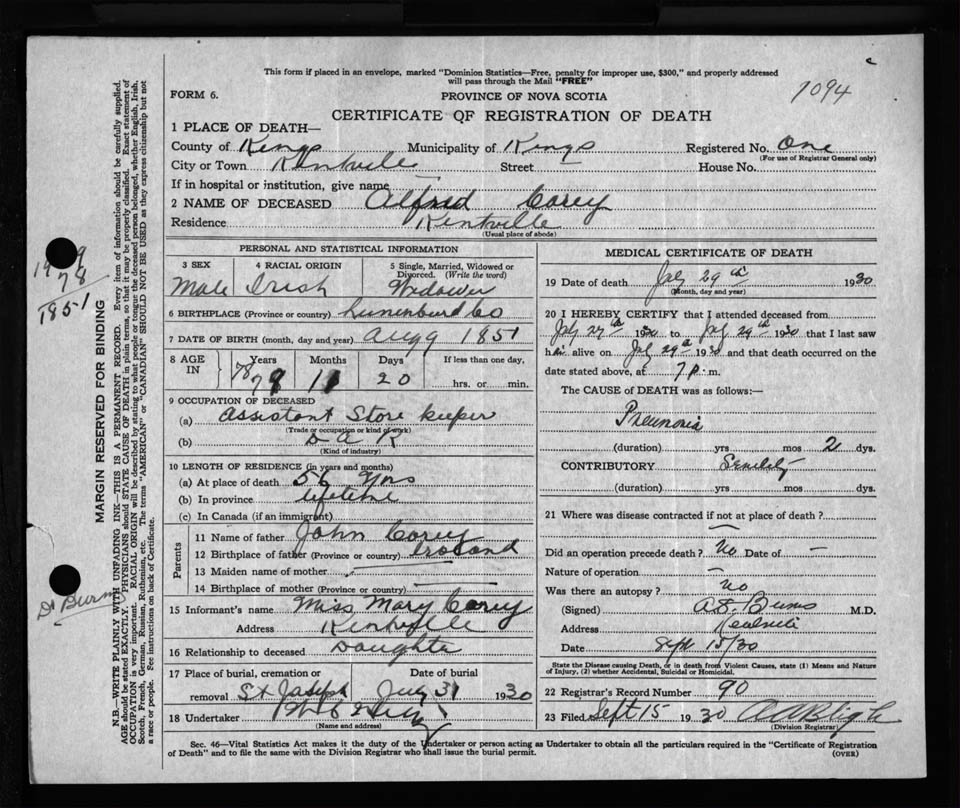 This form if placed in an envelope, marked "Dominion Statistics—Free, penalty for improper use, $300," and properly addressed
will pass through the Mail "FREE"
FORM 6.
PROVINCE OF NOVA SCOTIA
1094
CERTIFICATE OF REGISTRATION OF DEATH
1 PLACE OF DEATH—
County of Kings Municipality of Kings Registered No. One
(For use of Registrar General only)
City or Town Kentville Street House No.
If in hospital or institution, give name
2 NAME OF DECEASED Alfred Corey
Residence Kentville
(Usual place of abode)
PERSONAL AND STATISTICAL INFORMATION
3 SEX Male
4 RACIAL ORIGIN Irish
5 Single, Married, Widowed or Divorced. (Write the word) Widower
6 BIRTHPLACE (Province or country) Lunenburg Co
7 DATE OF BIRTH (month, day and year) Aug 9 1851
8 AGE IN Years 78 Months 11 Days 20 If less than one day, hrs. or min.
9 OCCUPATION OF DECEASED
(a) Assistant Store keeper
(Trade or occupation or kind of work)
(b) D A R
(Kind of industry)
10 LENGTH OF RESIDENCE (in years and months)
(a) At place of death 56 yrs
(b) In province lifetime
(c) In Canada (if an immigrant)
Parents
11 Name of father John Corey
12 Birthplace of father (Province or country)
13 Maiden name of mother
14 Birthplace of mother (Province or country)
15 Informant's name Miss Mary Corey
Address Kentville
16 Relationship to deceased Daughter
17 Place of burial, cremation or removal St Joseph
Date of burial 31 1930
18 Undertaker
(Name and address)
MEDICAL CERTIFICATE OF DEATH
19 Date of death July 29th 1930
(Month, day and year)
20 I HEREBY CERTIFY that I attended deceased from
July 27th 1930 to July 29th 1930 that I last saw
him alive on July 29th 1930 and that death occurred on the
date stated above, at 7 P. m.
The CAUSE of DEATH was as follows:—
Pneumonia
(duration) yrs mos 2 dys.
CONTRIBUTORY Senility
(duration) yrs mos dys.
21 Where was disease contracted if not at place of death? —
Did an operation precede death? No Date of —
Nature of operation —
Was there an autopsy? No
(Signed) Burns M.D.
Address Kentville
Date Sept 15/30
State the Disease causing Death, or in death from Violent Causes, state (1) Means and Nature
of Injury, (2) whether Accidental, Suicidal or Homicidal.
22 Registrar's Record Number 90
23 Filed Sept 15 1930
(Division Registrar)
Sec. 46—Vital Statistics Act makes it the duty of the Undertaker or person acting as Undertaker to obtain all the particulars required in the "Certificate of Registration
of Death" and to file the same with the Division Registrar who shall issue the burial permit.
(OVER)
MARGIN RESERVED FOR BINDING
N.B.—WRITE PLAINLY WITH UNFADING INK—THIS IS A PERMANENT RECORD. Every item of information should be carefully supplied.
AGE should be stated EXACTLY. PHYSICIANS should STATE CAUSE OF DEATH in plain terms, so that it may be properly classified. Exact statement of
OCCUPATION is very important. RACIAL ORIGIN will be described by stating to what people or tongue the deceased person belonged, whether English, Irish,
Scotch, French, German, Russian, Ruthenian, etc. The terms "AMERICAN" or "CANADIAN" SHOULD NOT BE USED as they express citizenship but not
a race or people. See instructions on back of Certificate.
78
1851
Dr Burns